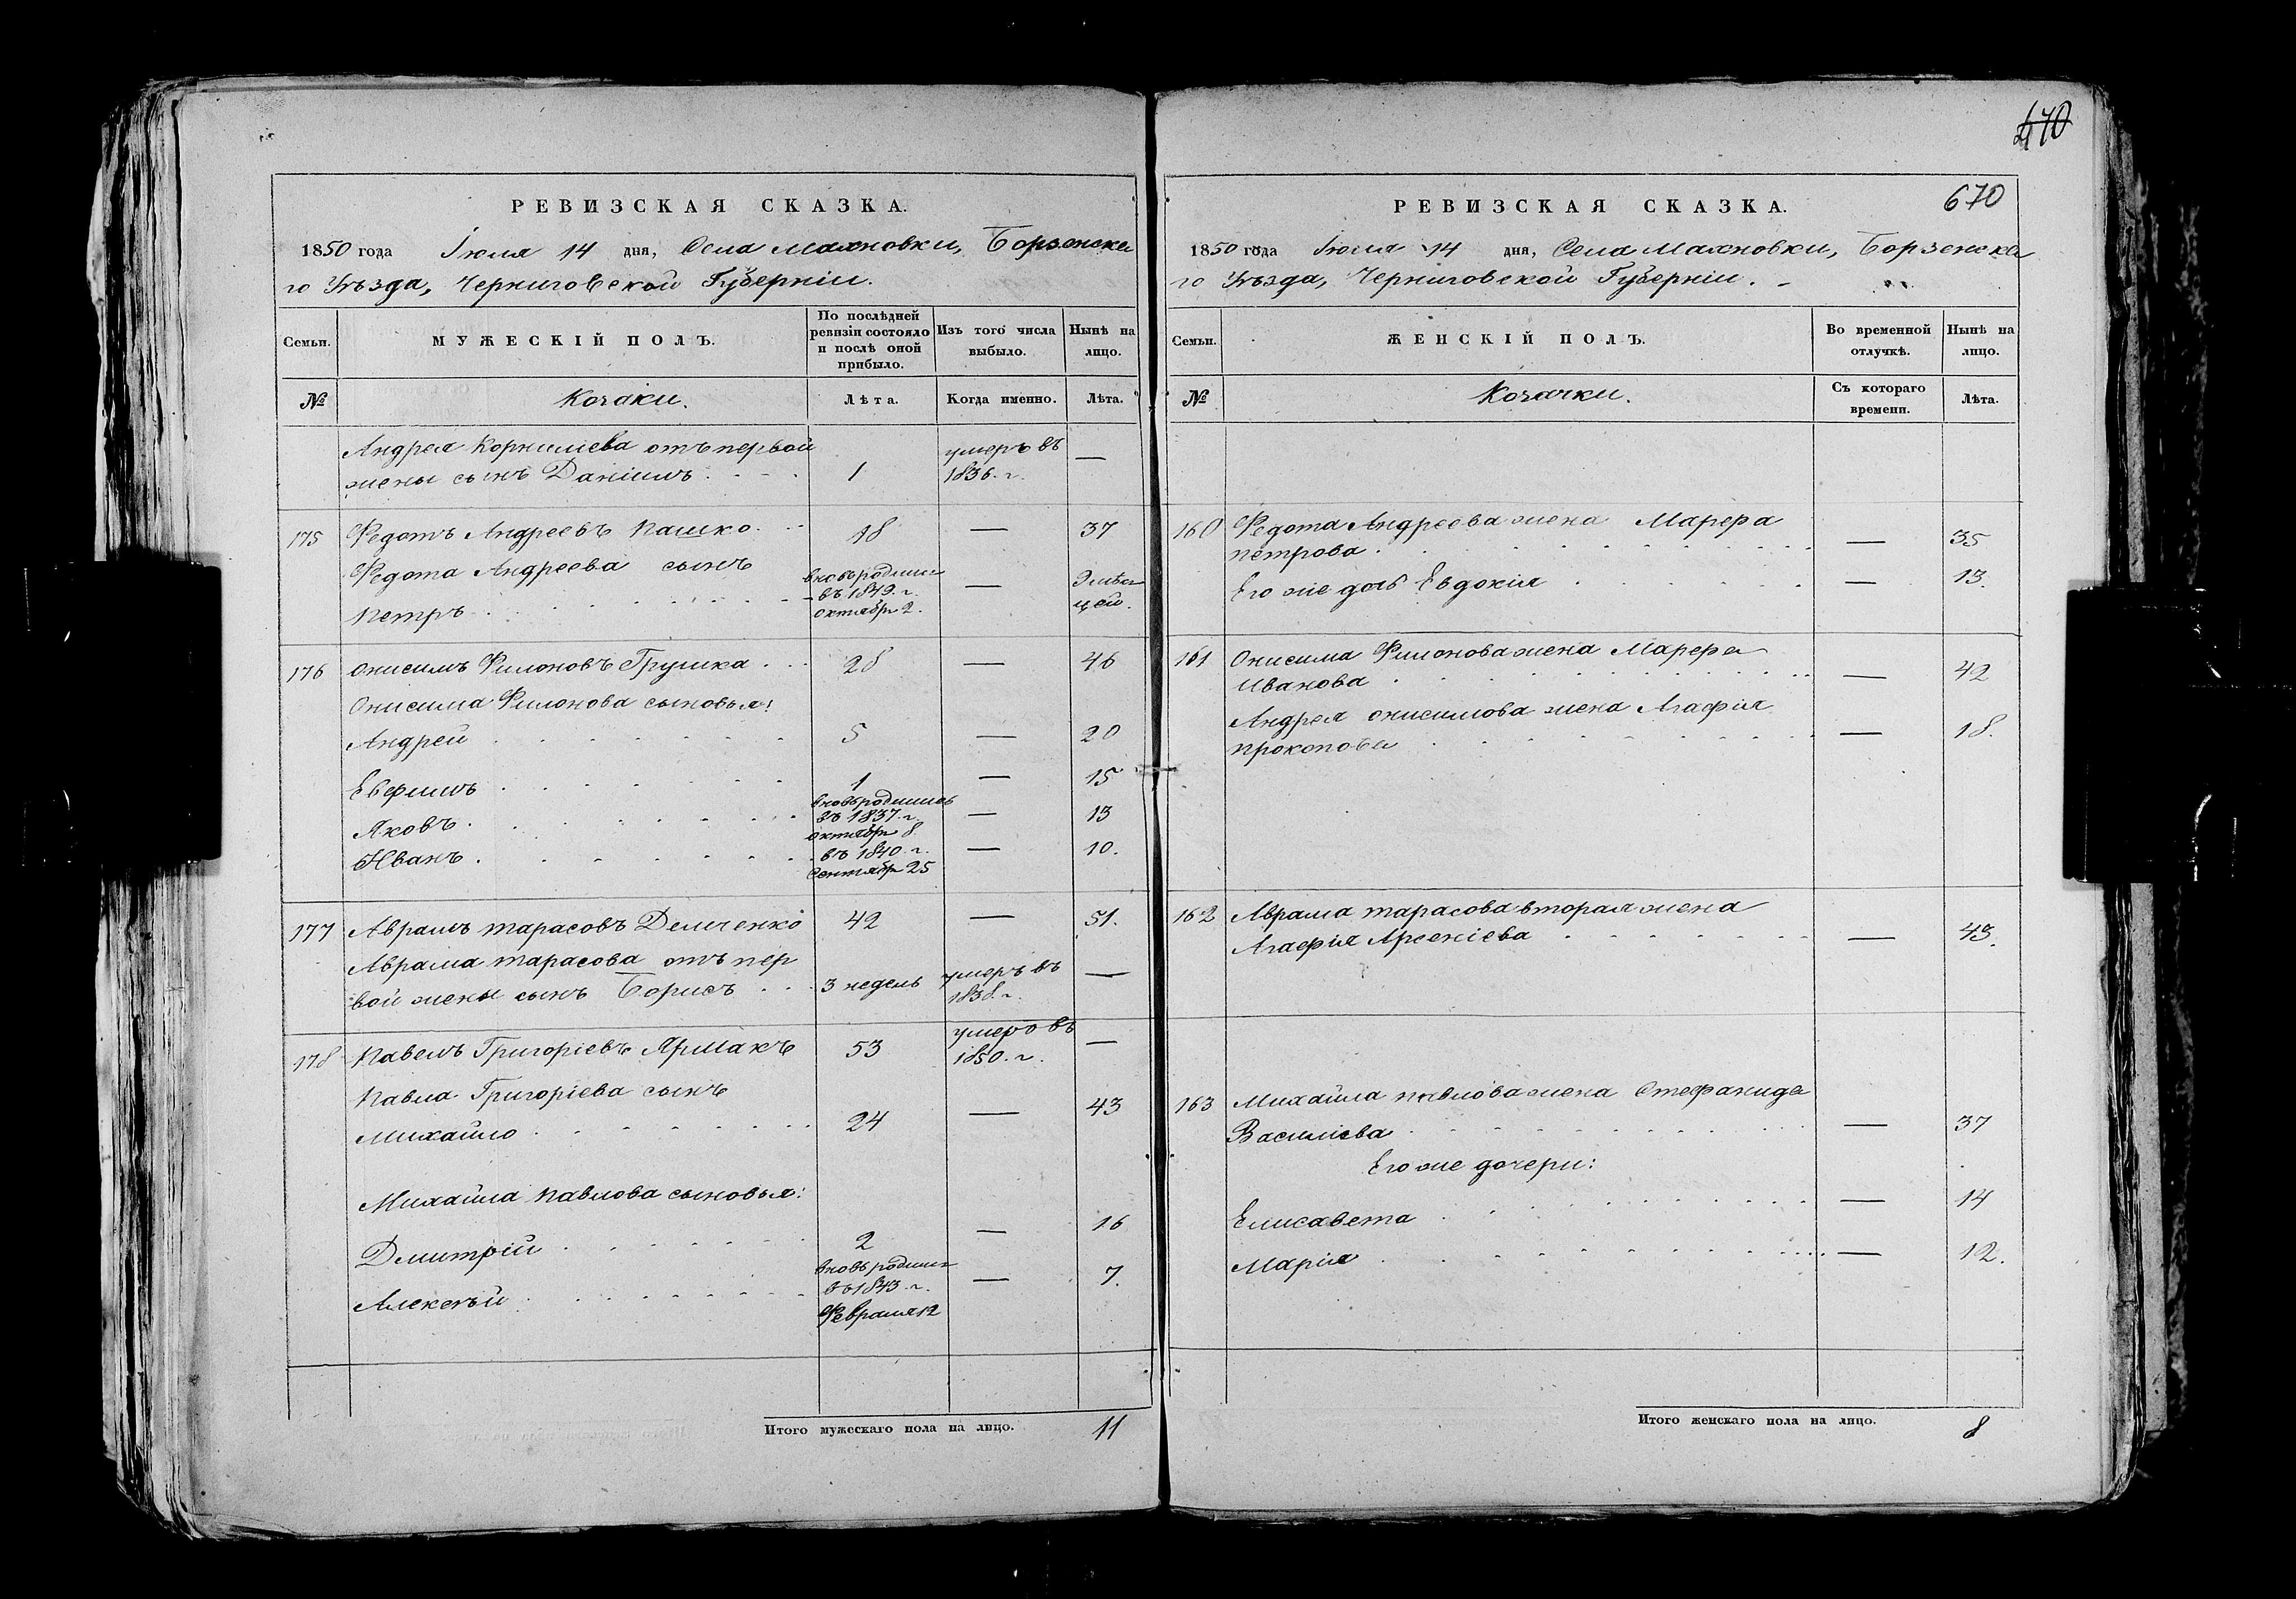 470
РЕВИЗСКАЯ СКАЗКА.
1850 года Іюля 14 дня, Села Махновки, Борзенска
го Уѣзда, Черниговской Губерніи.
Семьи.
МУЖЕСКІЙ ПОЛЪ.
По послѣдней
ревизіи состояло
и послѣ оной
прибыло.
Изъ того числа
выбыло.
Нынѣ на
лицо.
№
Козаки.
Лѣта.
Когда именно.
Лѣта.
Андрея Корниліева отъ первой
жены сынъ Даніилъ 1 умеръ въ 1836. г. —
175 Федотъ Андреевъ Пашко 18 — 37
Федота Андреева сынъ
Петръ вновь родился въ 1849. г. октября 2. — 9 мѣся цей.
176 Онисимъ Филоновъ Грушка 28 — 46
Онисима Филонова сыновья:
Андрей 5 — 20
Евфимъ 1 — 15
Яковъ вновь родились въ 1837. г. октября 8 — 13
Иванъ въ 1840. г. Сентября 25 — 10.
177 Аврамъ Тарасовъ Демченко 42 — 51.
Аврама Тарасова отъ пер
вой жены сынъ Борисъ 3 недель умеръ въ 1838. г. —
178 Павелъ Григоріевъ Ярмакъ 53 умеръ въ 1850. г. —
Павла Григоріева сынъ
Михайло 24 — 43
Михайла Павлова сыновья:
Дмитрій 2 — 16
Алексѣй вновь родился въ 1843. г. Февраля 12 — 7.
Итого мужескаго пола на лицо. 11
РЕВИЗСКАЯ СКАЗКА. 670
1850 года Іюля 14 дня, Села Махновки, Борзенска
го Уѣзда, Черниговской Губерніи.
Семьи.
ЖЕНСКІЙ ПОЛЪ.
Во временной
отлучкѣ.
Нынѣ на
лицо.
№
Козачки.
Съ котораго
времени.
Лѣта.
160 Федота Андреева жена Марфа
Петрова — 35
Его же дочь Евдокія — 13.
161 Онисима Филонова жена Марфа
Иванова — 42
Андрея Онисимова жена Агафія
Прокопова — 18.
162 Аврама Тарасова вторая жена
Агафія Арсеніева — 43.
163 Михайла Павлова жена Стефанида
Василіева — 37
Его же дочери:
Елисавета — 14
Марія — 12.
Итого женскаго пола на лицо. 8